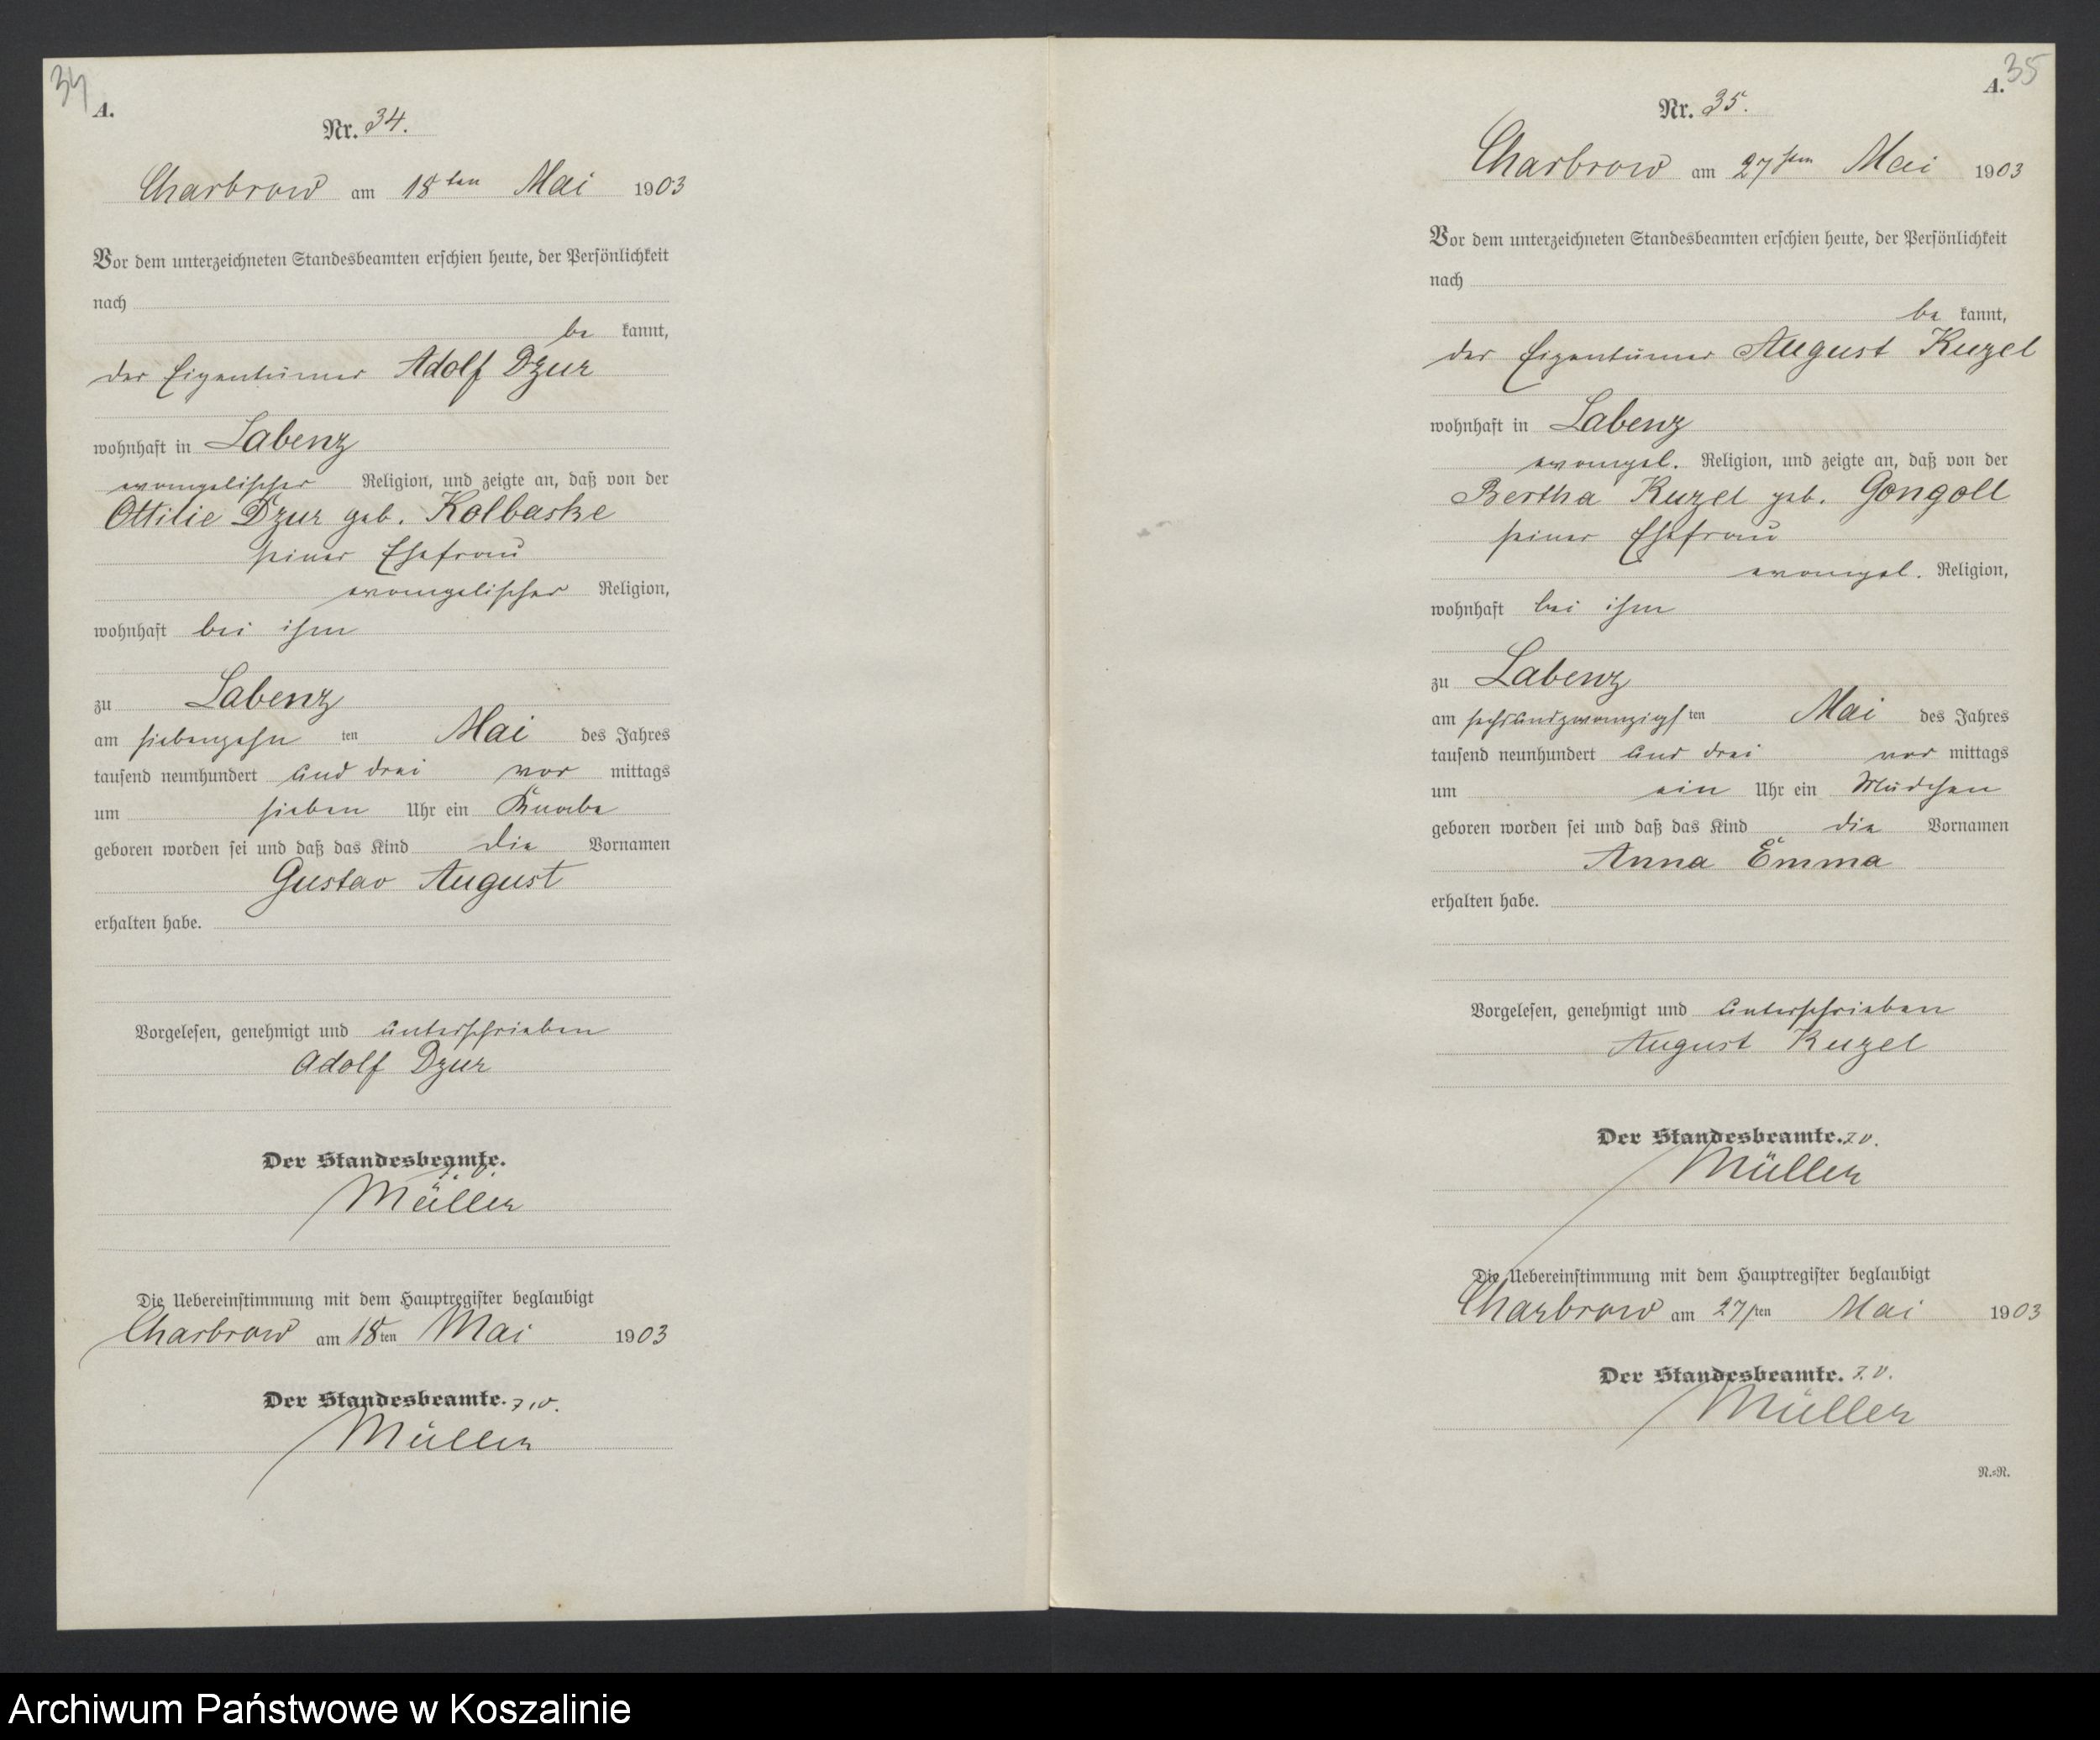 34
A.
Nr. 34.
Charbrow am 18ten Mai 1903
Vor dem unterzeichneten Standesbeamten erschien heute, der Persönlichkeit
nach
be kannt,
der Eigentümer Adolf Dzur
wohnhaft in Labenz
evangelischer Religion, und zeigte an, daß von der
Ottilie Dzur geb. Kolbaske
seiner Ehefrau
evangelischer Religion,
wohnhaft bei ihm
zu Labenz
am siebenzehn ten Mai des Jahres
tausend neunhundert und drei vor mittags
um sieben Uhr ein Knabe
geboren worden sei und daß das Kind die Vornamen
Gustav August
erhalten habe.
Vorgelesen, genehmigt und unterschrieben
Adolf Dzur
Der Standesbeamte.
z. V.
Müller
Die Uebereinstimmung mit dem Hauptregister beglaubigt
Charbrow am 18ten Mai 1903
Der Standesbeamte. z. V.
Müller
35
A.
Nr. 35.
Charbrow am 27sten Mai 1903
Vor dem unterzeichneten Standesbeamten erschien heute, der Persönlichkeit
nach
be kannt,
der Eigentümer August Kuzel
wohnhaft in Labenz
evangel. Religion, und zeigte an, daß von der
Bertha Kuzel geb. Gongoll
seiner Ehefrau
evangel. Religion,
wohnhaft bei ihm
zu Labenz
am sechsundzwanzigsten Mai des Jahres
tausend neunhundert und drei vor mittags
um ein Uhr ein Mädchen
geboren worden sei und daß das Kind die Vornamen
Anna Emma
erhalten habe.
Vorgelesen, genehmigt und unterschrieben
August Kuzel
Der Standesbeamte. z. V.
Müller
Die Uebereinstimmung mit dem Hauptregister beglaubigt
Charbrow am 27sten Mai 1903
Der Standesbeamte. z. V.
Müller
N.=R.
Archiwum Państwowe w Koszalinie